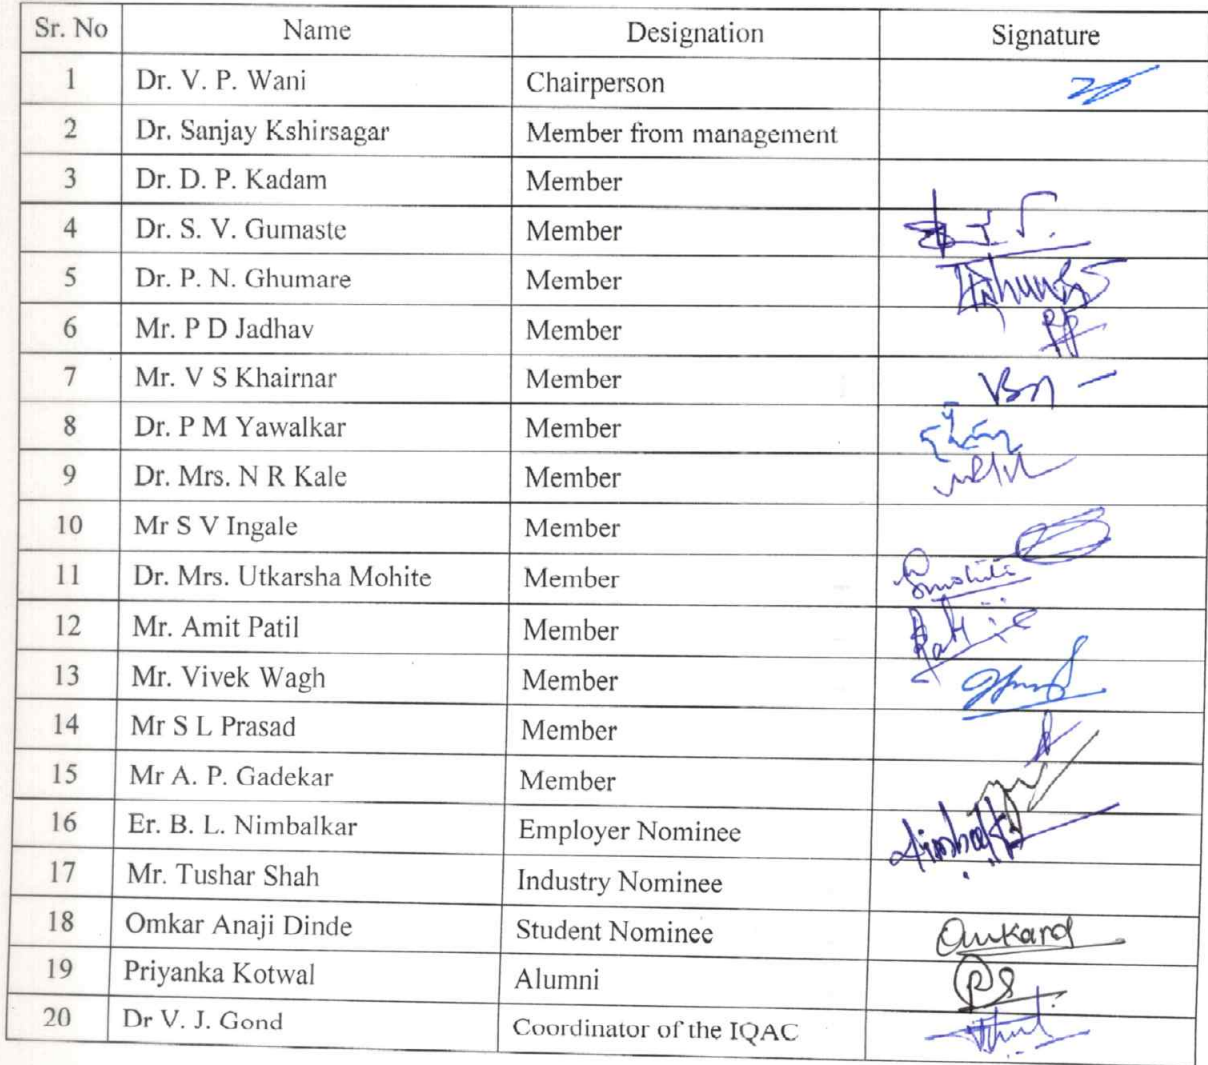 Sr. No Name Designation Signature
1 Dr. V. P. Wani Chairperson
2 Dr. Sanjay Kshirsagar Member from management
3 Dr. D. P. Kadam Member
4 Dr. S. V. Gumaste Member
5 Dr. P. N. Ghumare Member
6 Mr. P D Jadhav Member
7 Mr. V S Khairnar Member
8 Dr. P M Yawalkar Member
9 Dr. Mrs. N R Kale Member
10 Mr S V Ingale Member
11 Dr. Mrs. Utkarsha Mohite Member
12 Mr. Amit Patil Member
13 Mr. Vivek Wagh Member
14 Mr S L Prasad Member
15 Mr A. P. Gadekar Member
16 Er. B. L. Nimbalkar Employer Nominee
17 Mr. Tushar Shah Industry Nominee
18 Omkar Anaji Dinde Student Nominee Omkard
19 Priyanka Kotwal Alumni
20 Dr V. J. Gond Coordinator of the IQAC